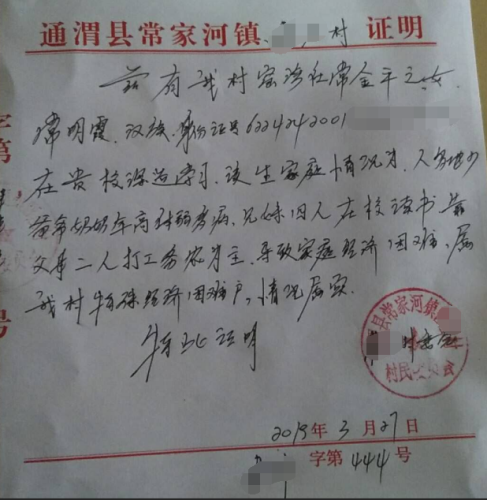 通渭县常家河镇 村 证明
兹有我村 社常金平之女
常明霞、汉族、身份证号622424 2001
在贵校深造学习、该生家庭情况为、人多地少
爷爷奶奶年高体弱多病、兄妹四人在校读书 靠
父母二人打工务农为主、导致家庭经济困难、属
我村特殊经济困难户、情况属实
特此证明
县常家河镇
村民委员会
2019年3月27日
字第444号
字第
号